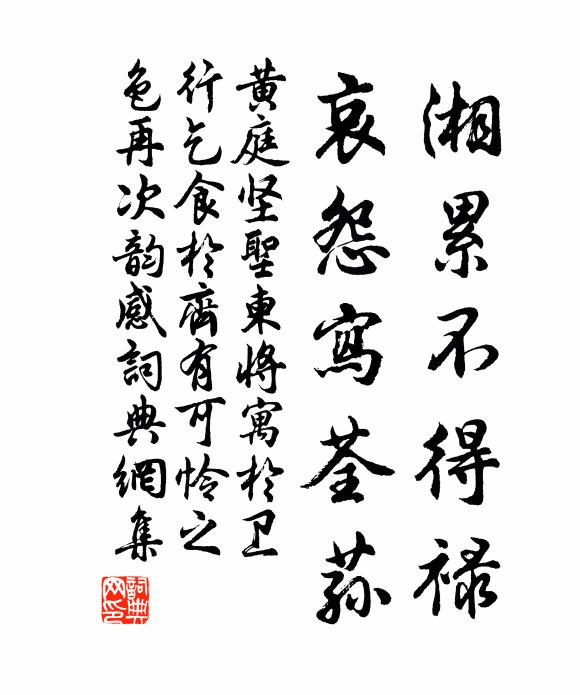 湘累不得禄
哀怨寫荃蓀
黄庭坚聖東將寓於卫
行乞食於齊有可怜之
色再次韵感詞典網集
詞典网印